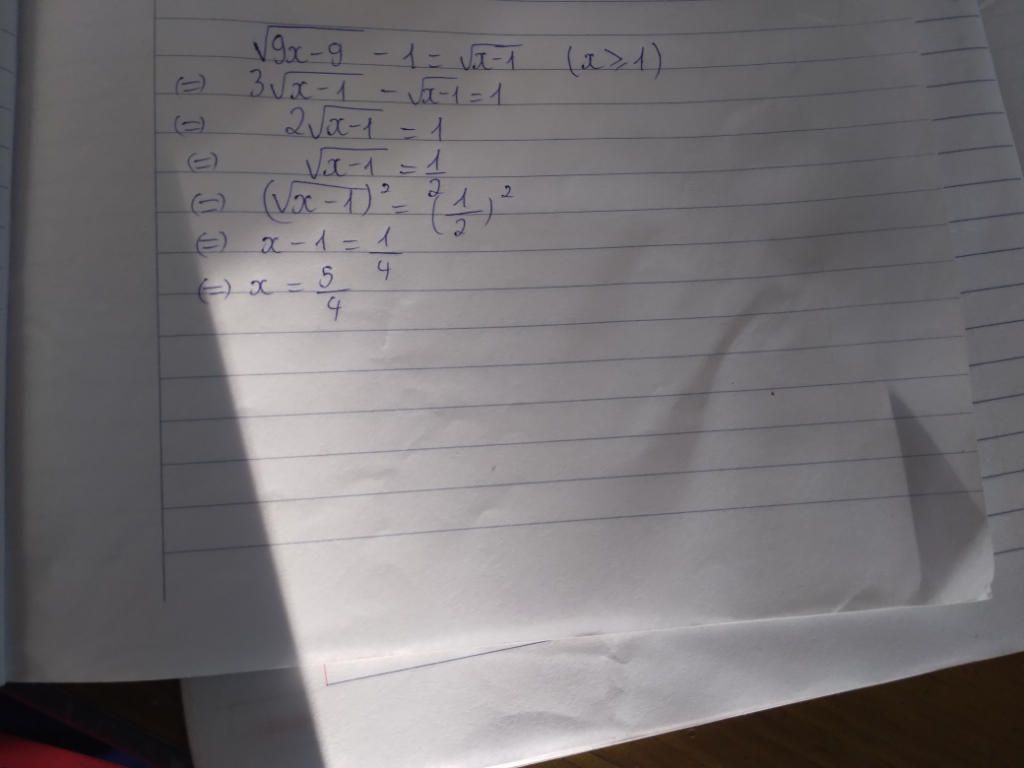 √(9x-9) - 1 = √(x-1) (x ⩾ 1)
(=) 3√(x-1) - √(x-1) = 1
(=) 2√(x-1) = 1
(=) √(x-1) = 1/2
(=) (√(x-1))² = (1/2)²
(=) x - 1 = 1/4
(=) x = 5/4